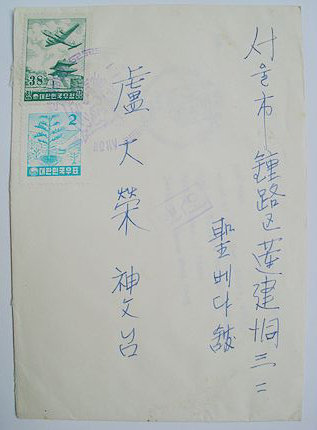 서울市 鍾路区 蓮建洞 三二
聖베다舘
盧大榮 神父 台
38
대한민국우표
2
대한민국우표